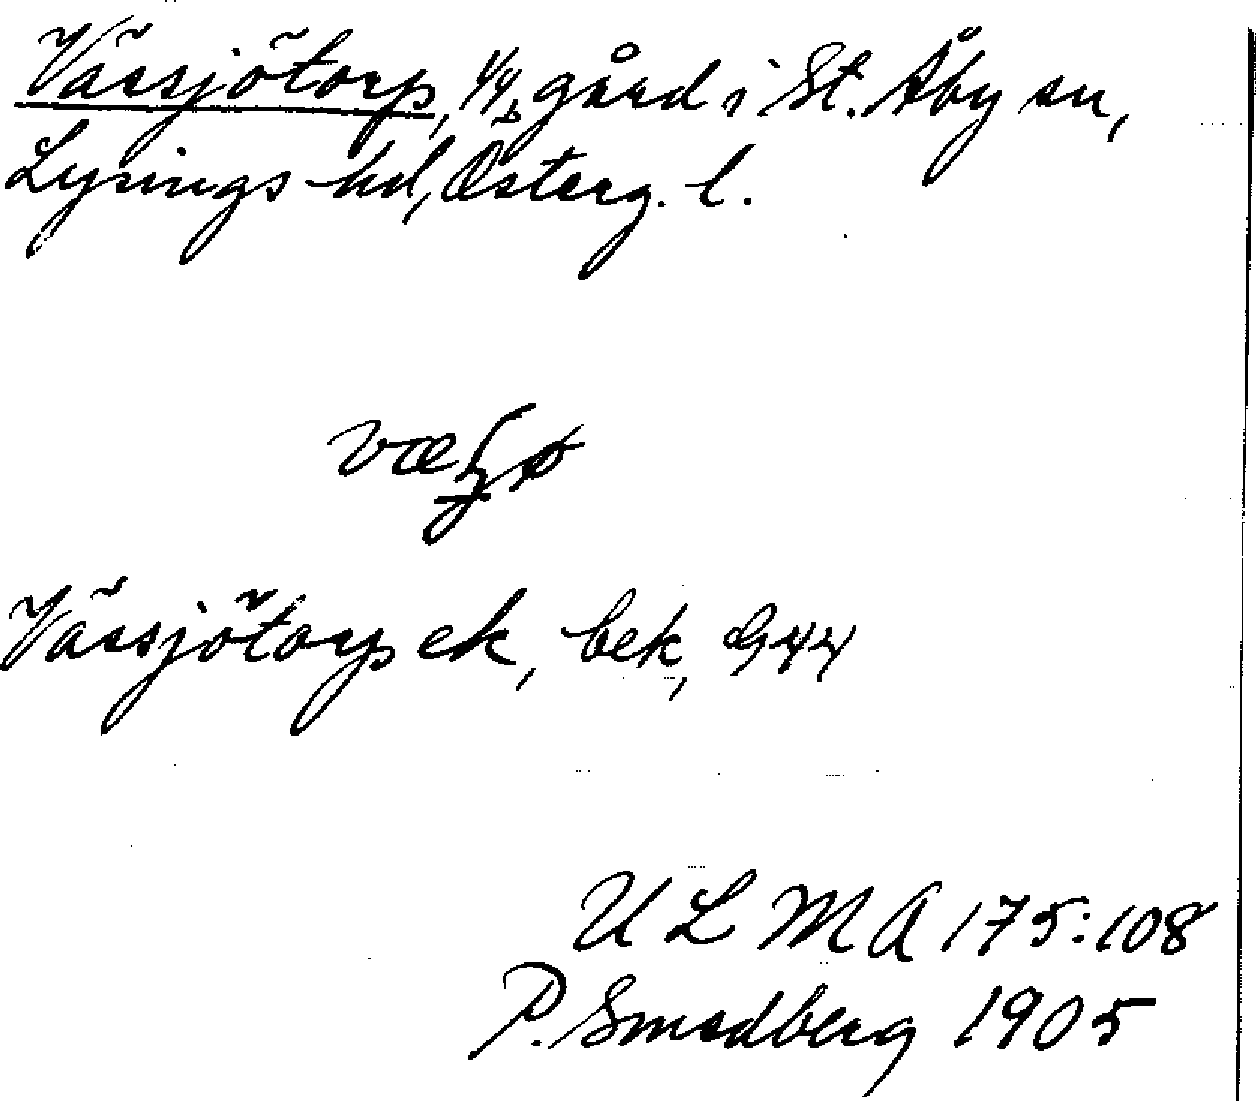 Vässjötorp, 1/4 gård i St. Åby sn,
Lysings hd, Österg. l.
Vässjötorp ek, bek, G 44
U L M A 175:108
P. Smedberg 1905